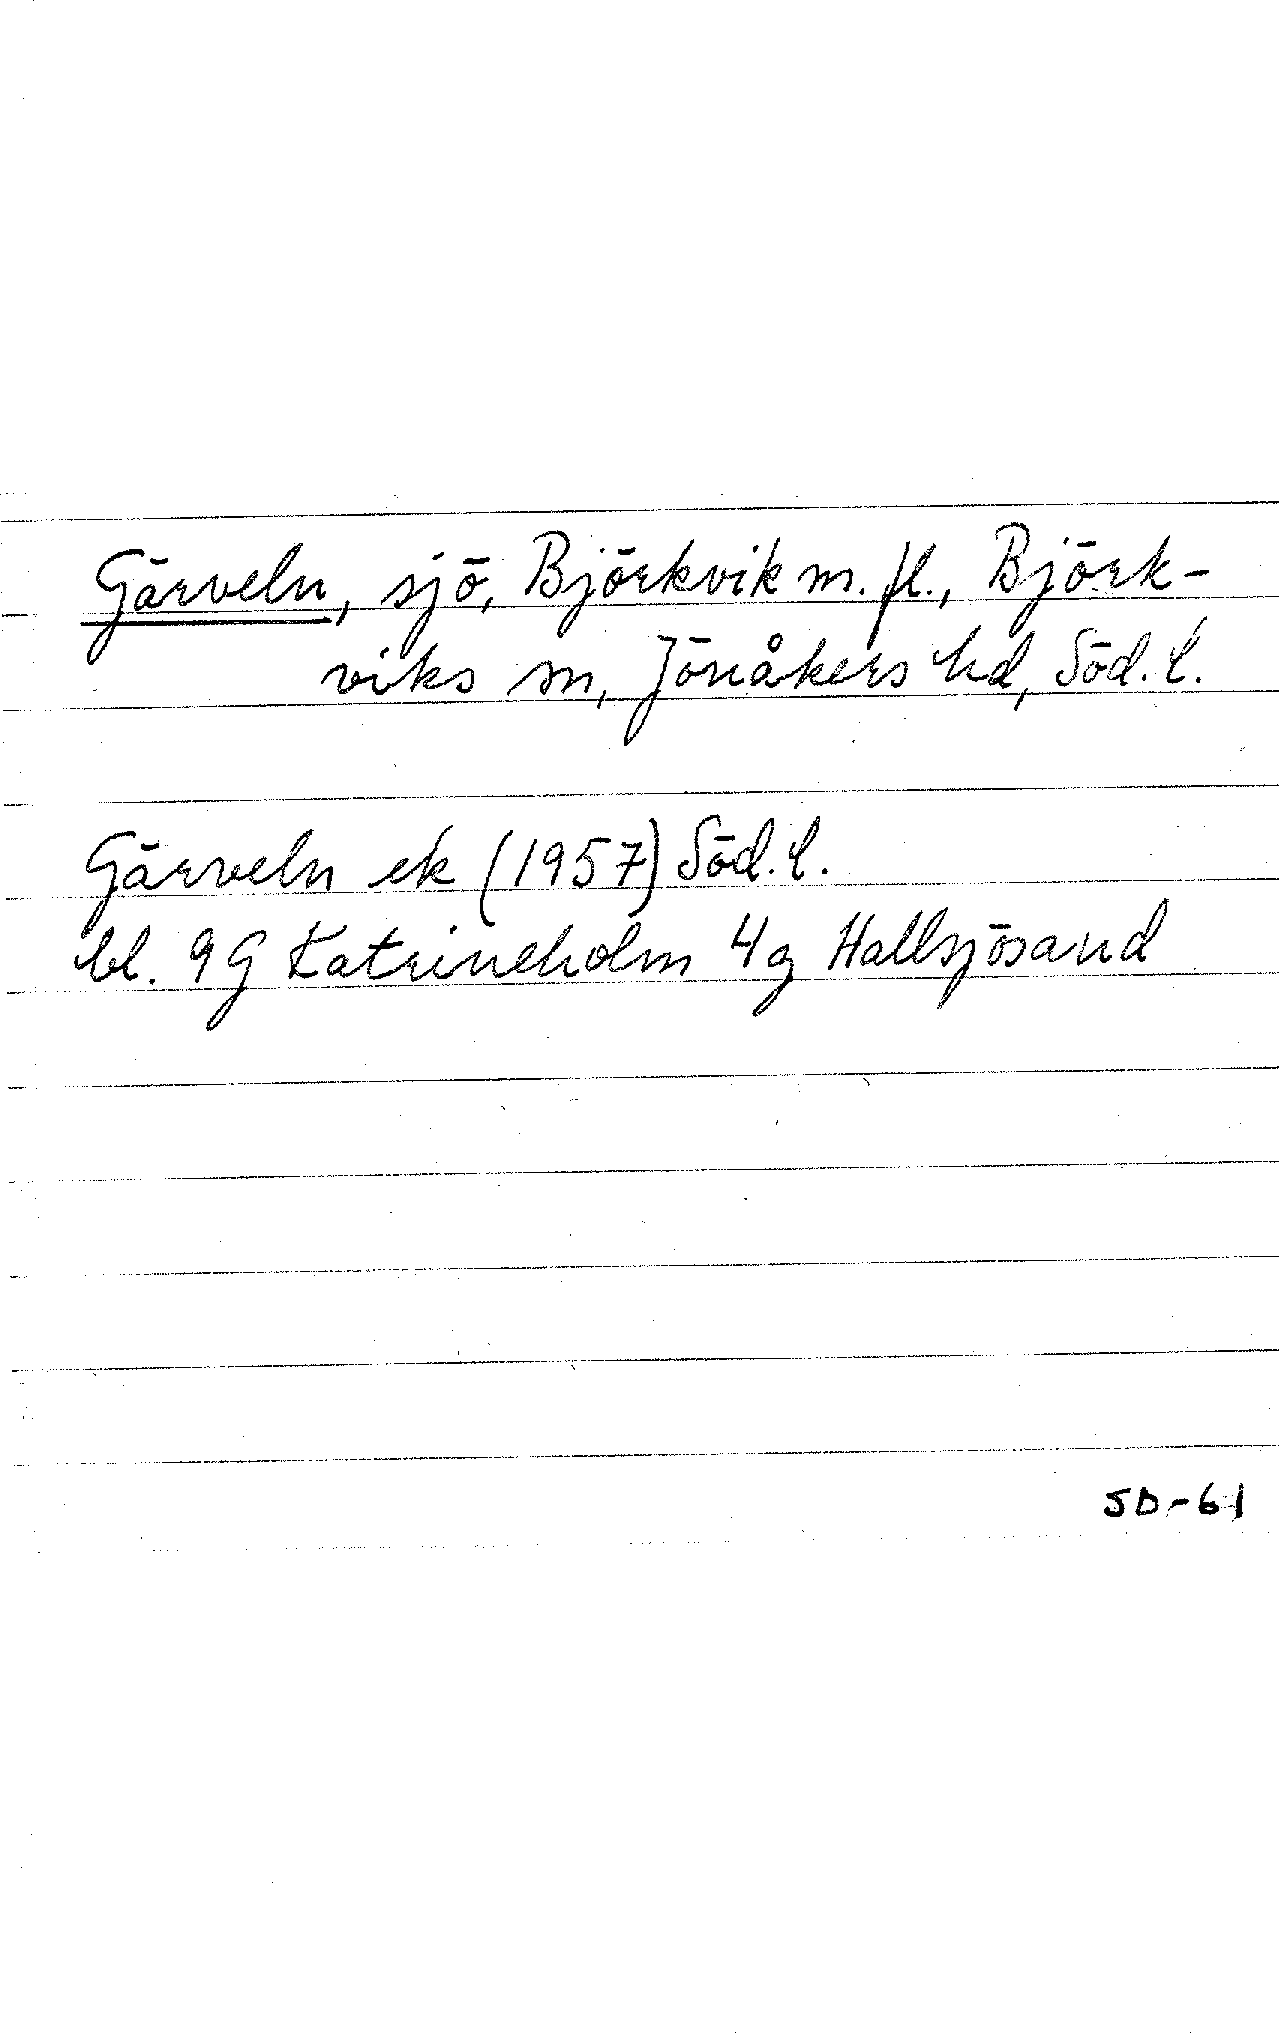 Gärveln, sjö, Björkvik m. fl., Björk-
viks sn, Jönåkers hd, Söd. l.
Gärveln ek (1957) Söd. l.
bl. 9G Katrineholm 4g Hallsjösand
SD-61